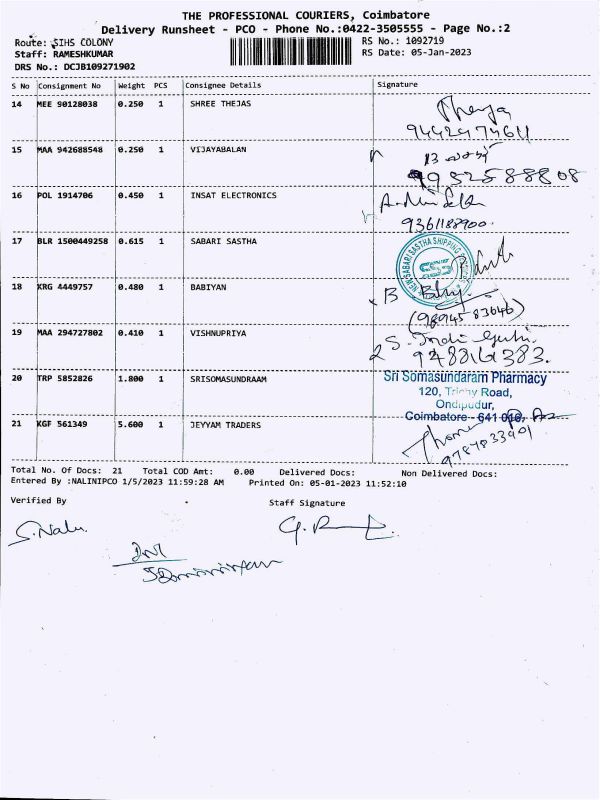 THE PROFESSIONAL COURIERS, Coimbatore
Delivery Runsheet - PCO - Phone No.:0422-3505555 - Page No.:2
Route: SIHS COLONY
RS No.: 1092719
Staff: RAMESHKUMAR
RS Date: 05-Jan-2023
DRS No.: DCJB109271902
S No Consignment No Weight PCS Consignee Details Signature
14 MEE 90128038 0.250 1 SHREE THEJAS
9442974611
15 MAA 942688548 0.250 1 VIJAYABALAN
16 POL 1914706 0.450 1 INSAT ELECTRONICS
9361188900.
17 BLR 1500449258 0.615 1 SABARI SASTHA
NEW SABARI SASTHA SHIPPING
18 KRG 4449757 0.480 1 BABIYAN
(9894583646)
19 MAA 294727802 0.410 1 VISHNUPRIYA
20 TRP 5852826 1.800 1 SRISOMASUNDRAAM
Sri Somasundaram Pharmacy
120, Trichy Road,
Ondipudur,
Coimbatore - 641 016,
21 KGF 561349 5.600 1 JEYYAM TRADERS
9787833901
Total No. Of Docs: 21 Total COD Amt: 0.00 Delivered Docs: Non Delivered Docs:
Entered By :NALINIPCO 1/5/2023 11:59:28 AM Printed On: 05-01-2023 11:52:10
Verified By Staff Signature
S.Nalu